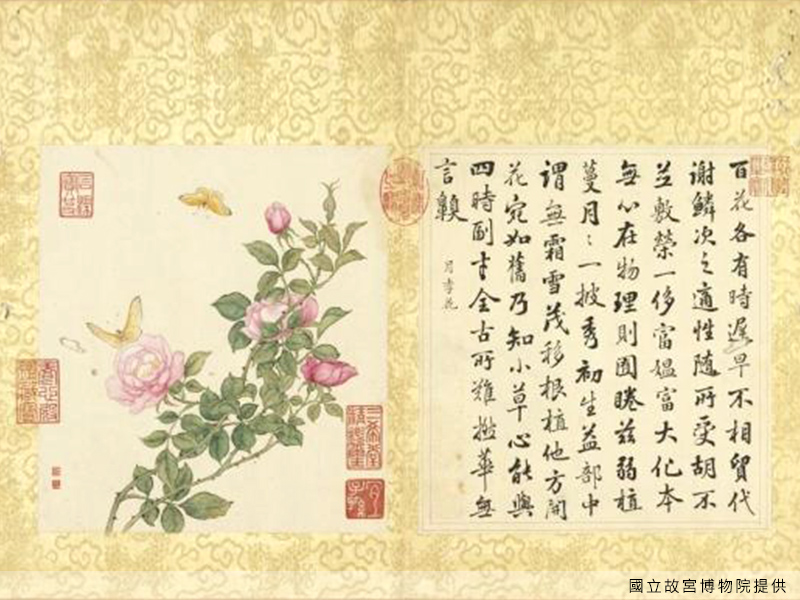 百花各有時遲早不相貿代
謝鱗次之適性隨所受胡不
並敷榮一侈富媼富大化本
無心在物理則囿睠茲弱植
蔓月〻一披秀初生益部中
謂無霜雪茂移根植他方開
花宛如舊乃知小草心能與
四時副才全古所難擬華無
言齅
月季花
三希堂精鑑璽
宜子孫
國立故宮博物院提供